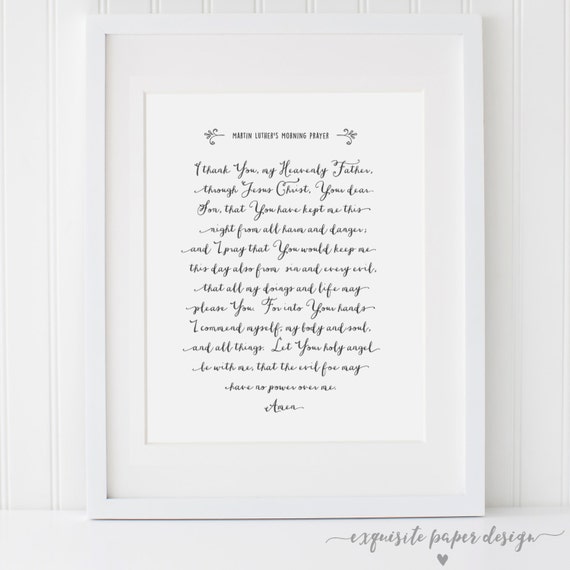 MARTIN LUTHER'S MORNING PRAYER
I thank You, my Heavenly Father,
through Jesus Christ, Your dear
Son, that You have kept me this
night from all harm and danger;
and I pray that You would keep me
this day also from sin and every evil,
that all my doings and life may
please You. For into Your hands
I commend myself, my body and soul,
and all things. Let Your holy angel
be with me, that the evil foe may
have no power over me.
Amen
exquisite paper design